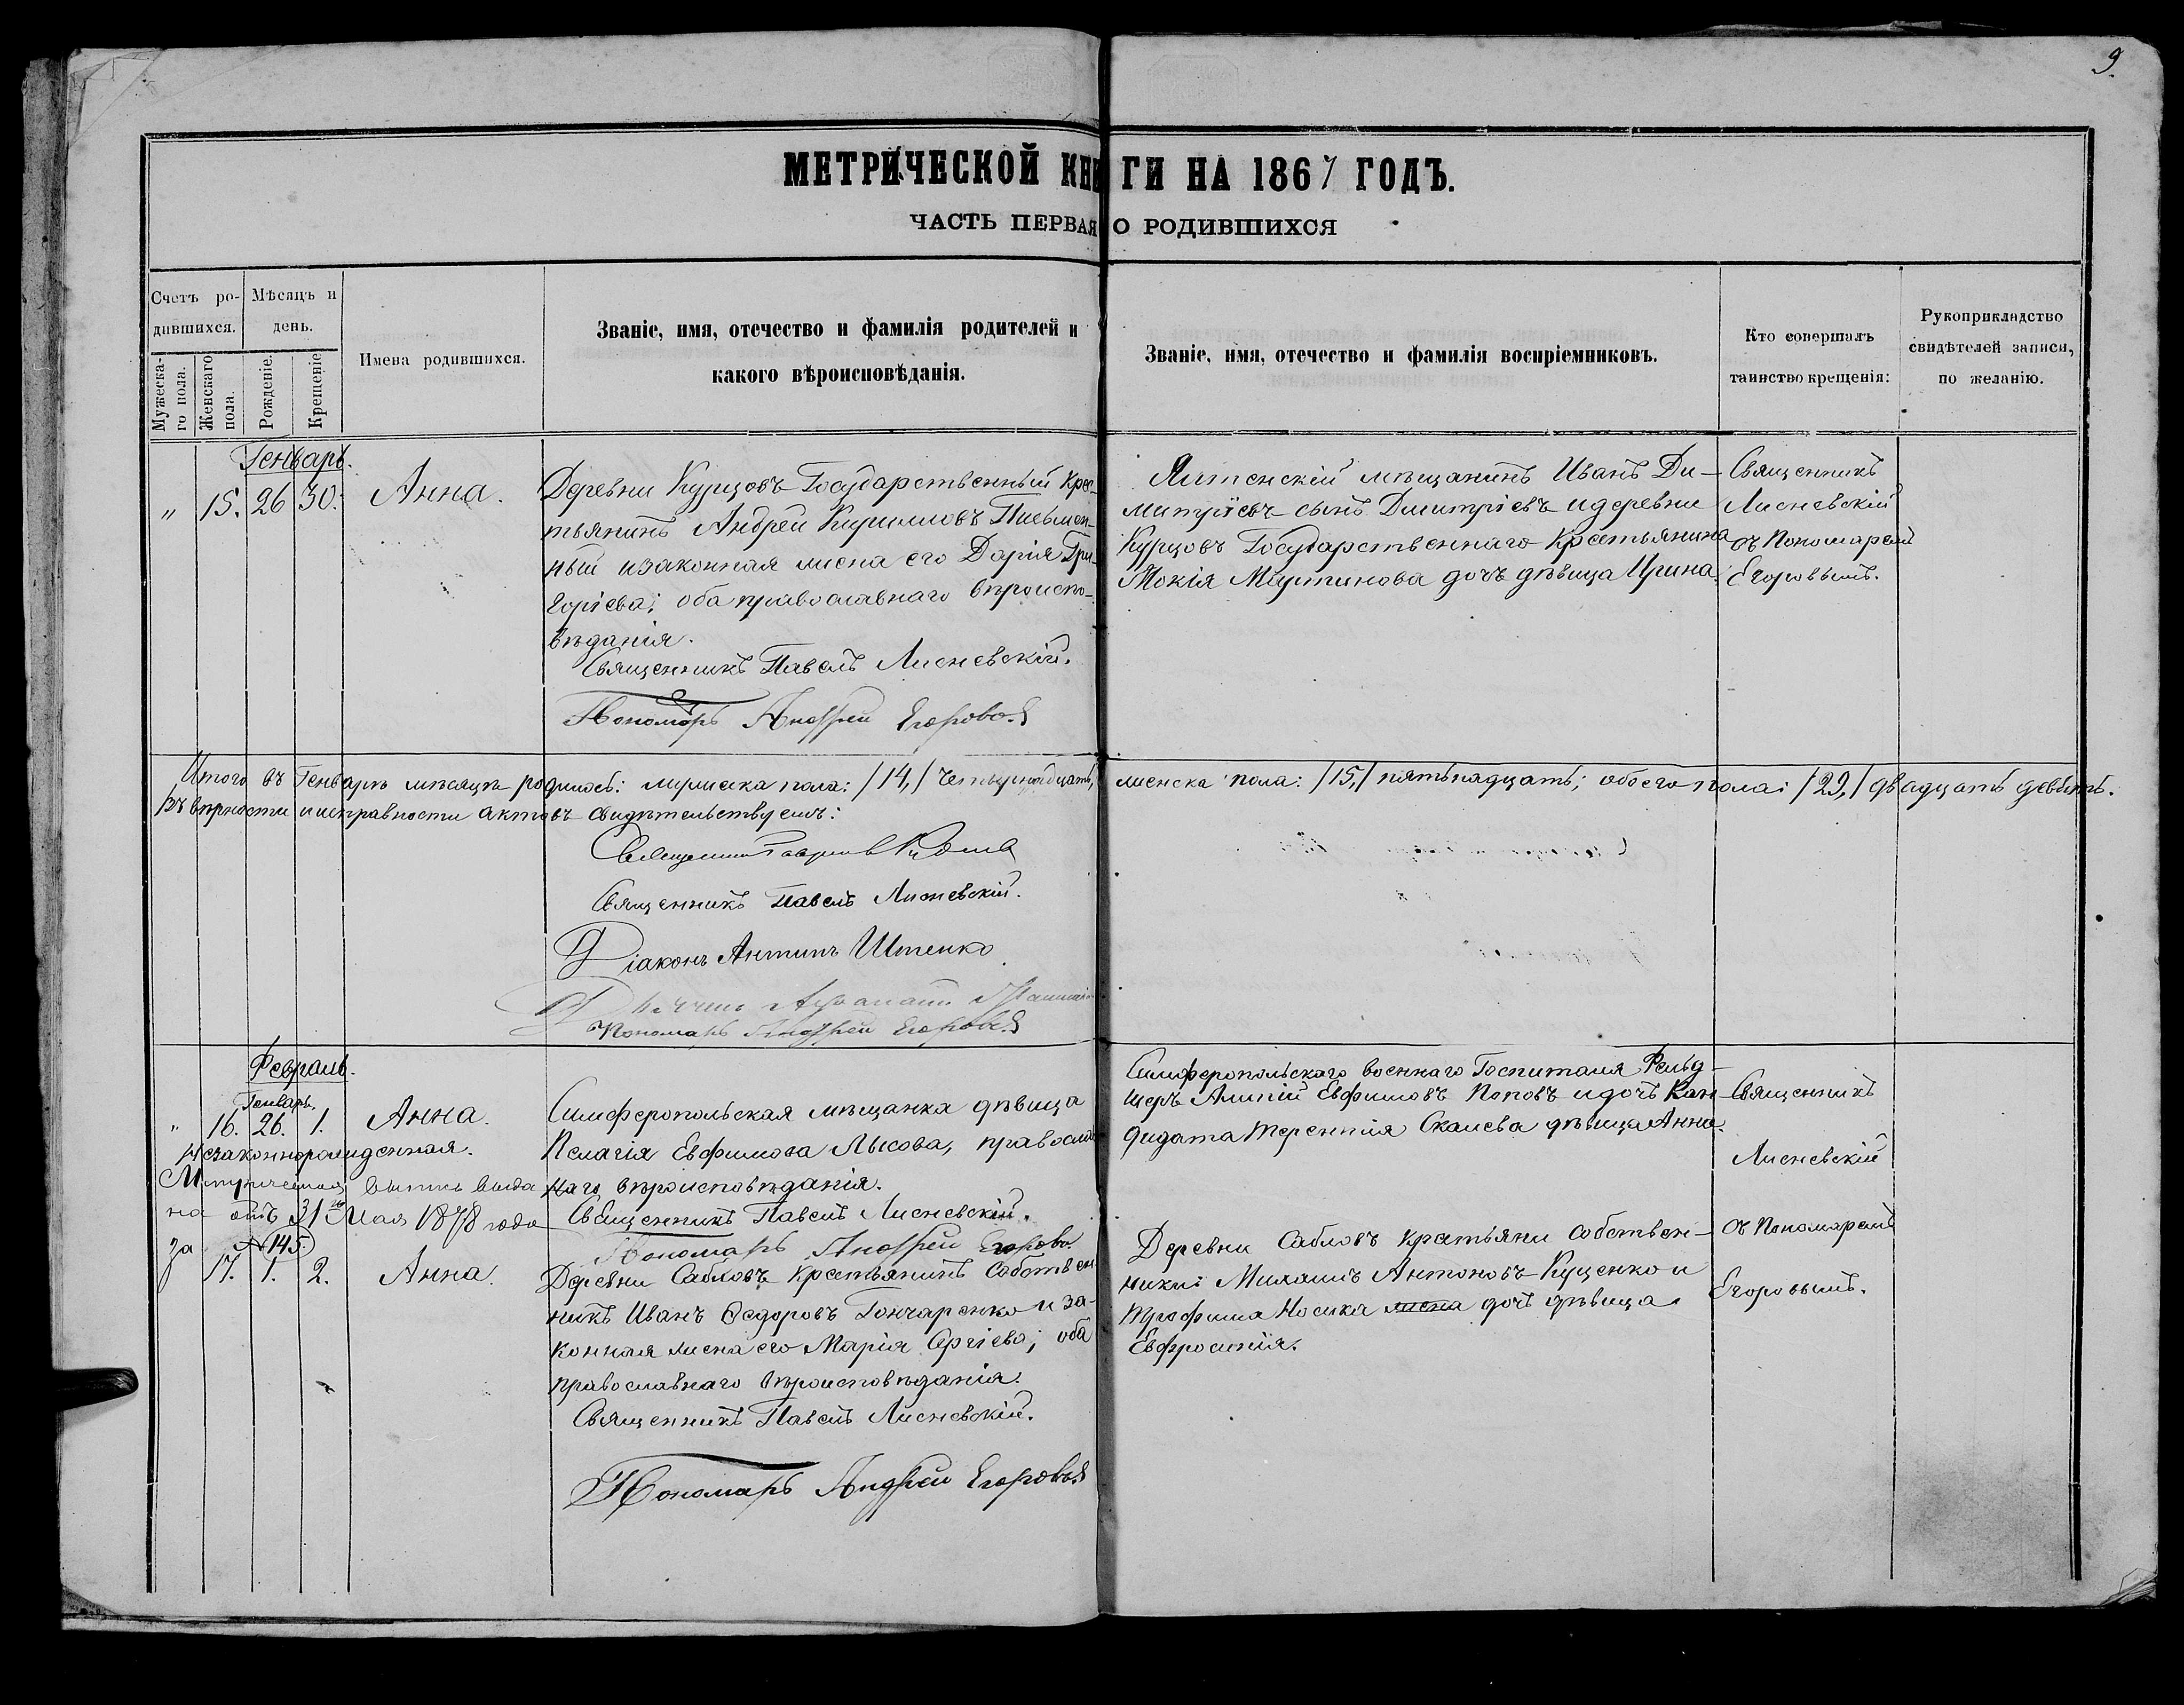 9.
МЕТРИЧЕСКОЙ КНИГИ НА 1867 ГОДЪ.
ЧАСТЬ ПЕРВАЯ О РОДИВШИХСЯ
Счетъ ро-
дившихся.
Мѣсяцъ и
день.
Мужеска-
го пола.
Женскаго
пола.
Рожденіе.
Крещеніе.
Имена родившихся.
Званіе, имя, отечество и фамилія родителей и
какого вѣроисповѣданія.
Званіе, имя, отечество и фамилія воспріемниковъ.
Кто совершалъ
таинство крещенія:
Рукоприкладство
свидѣтелей записи,
по желанію.
Генварь.
" 15. 26 30. Анна.
Деревни Курцовъ Государственный Крес-
тьянинъ Андрей Кирилловъ Письмен-
ный и законная жена его Дарія Гри-
горіева; оба православнаго вѣроиспо-
вѣданія.
Священникъ Павелъ Лисневскій.
Пономарь Андрей Егоровъ
Ялтенскій мѣщанинъ Иванъ Ди-
митріевъ сынъ Димитріевъ и деревни
Курцовъ Государственнаго Крестьянина
Мокія Мартинова дочь дѣвица Ирина.
Священникъ
Лисневскій
съ Пономаремъ
Егоровымъ.
Итого въ Генварѣ мѣсяцѣ родилось: мужеска пола: /14,/ четырнадцать, женска пола: /15,/ пятьнадцать; обоего пола: /29,/ двадцать девять.
Въ вѣрности и исправности актовъ свидѣтельствуемъ:
Священникъ
Священникъ Павелъ Лисневскій.
Діаконъ Антипъ Штенко
Пономарь Андрей Егоровъ
Февраль.
Генварь.
" 16. 26. 1. Анна.
Незаконнорожденная.
Метрическая выпись выда
на отъ 31го Мая 1878 года
за №145.
Симферопольская мѣщанка дѣвица
Пелагія Евфимова Лысова, православ
наго вѣроисповѣданія.
Священникъ Павелъ Лисневскій.
Пономарь Андрей Егоровъ
Симферопольскаго военнаго Госпиталя Фельд-
шеръ Алипій Евфимовъ Поповъ и дочь Кан-
дидата Терентія Скалева дѣвица Анна.
Священникъ
Лисневскій
съ Пономаремъ
Егоровымъ.
17. 1. 2. Анна.
Деревни Сабловъ Крестьянинъ Собствен
никъ Иванъ Ѳедоровъ Гончаренко и за-
конная жена его Марія Сергіева; оба
православнаго вѣроисповѣданія.
Священникъ Павелъ Лисневскій.
Пономарь Андрей Егоровъ
Деревни Сабловъ крестьяни собствен-
ники: Михаилъ Антоновъ Куценко и
Трофима Носика жена дочь дѣвица
Евфросинія.